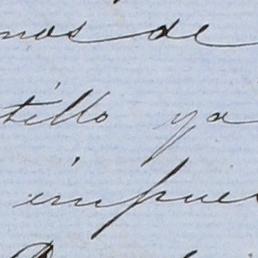 nos de
tillo ya
impues